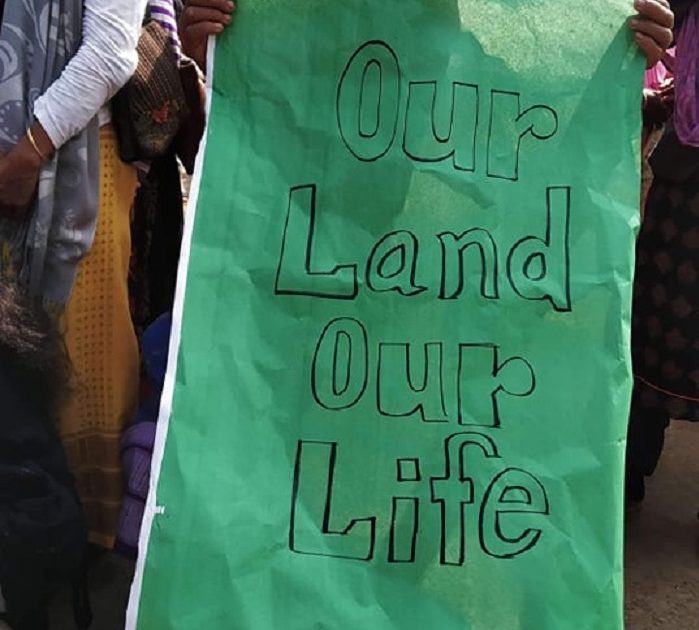 Our
Land
Our
Life